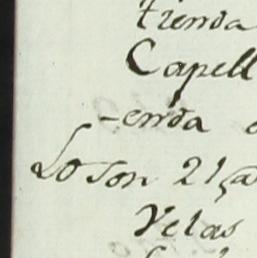 tienda
Capell
-enda
Lo son 21,a
Velas